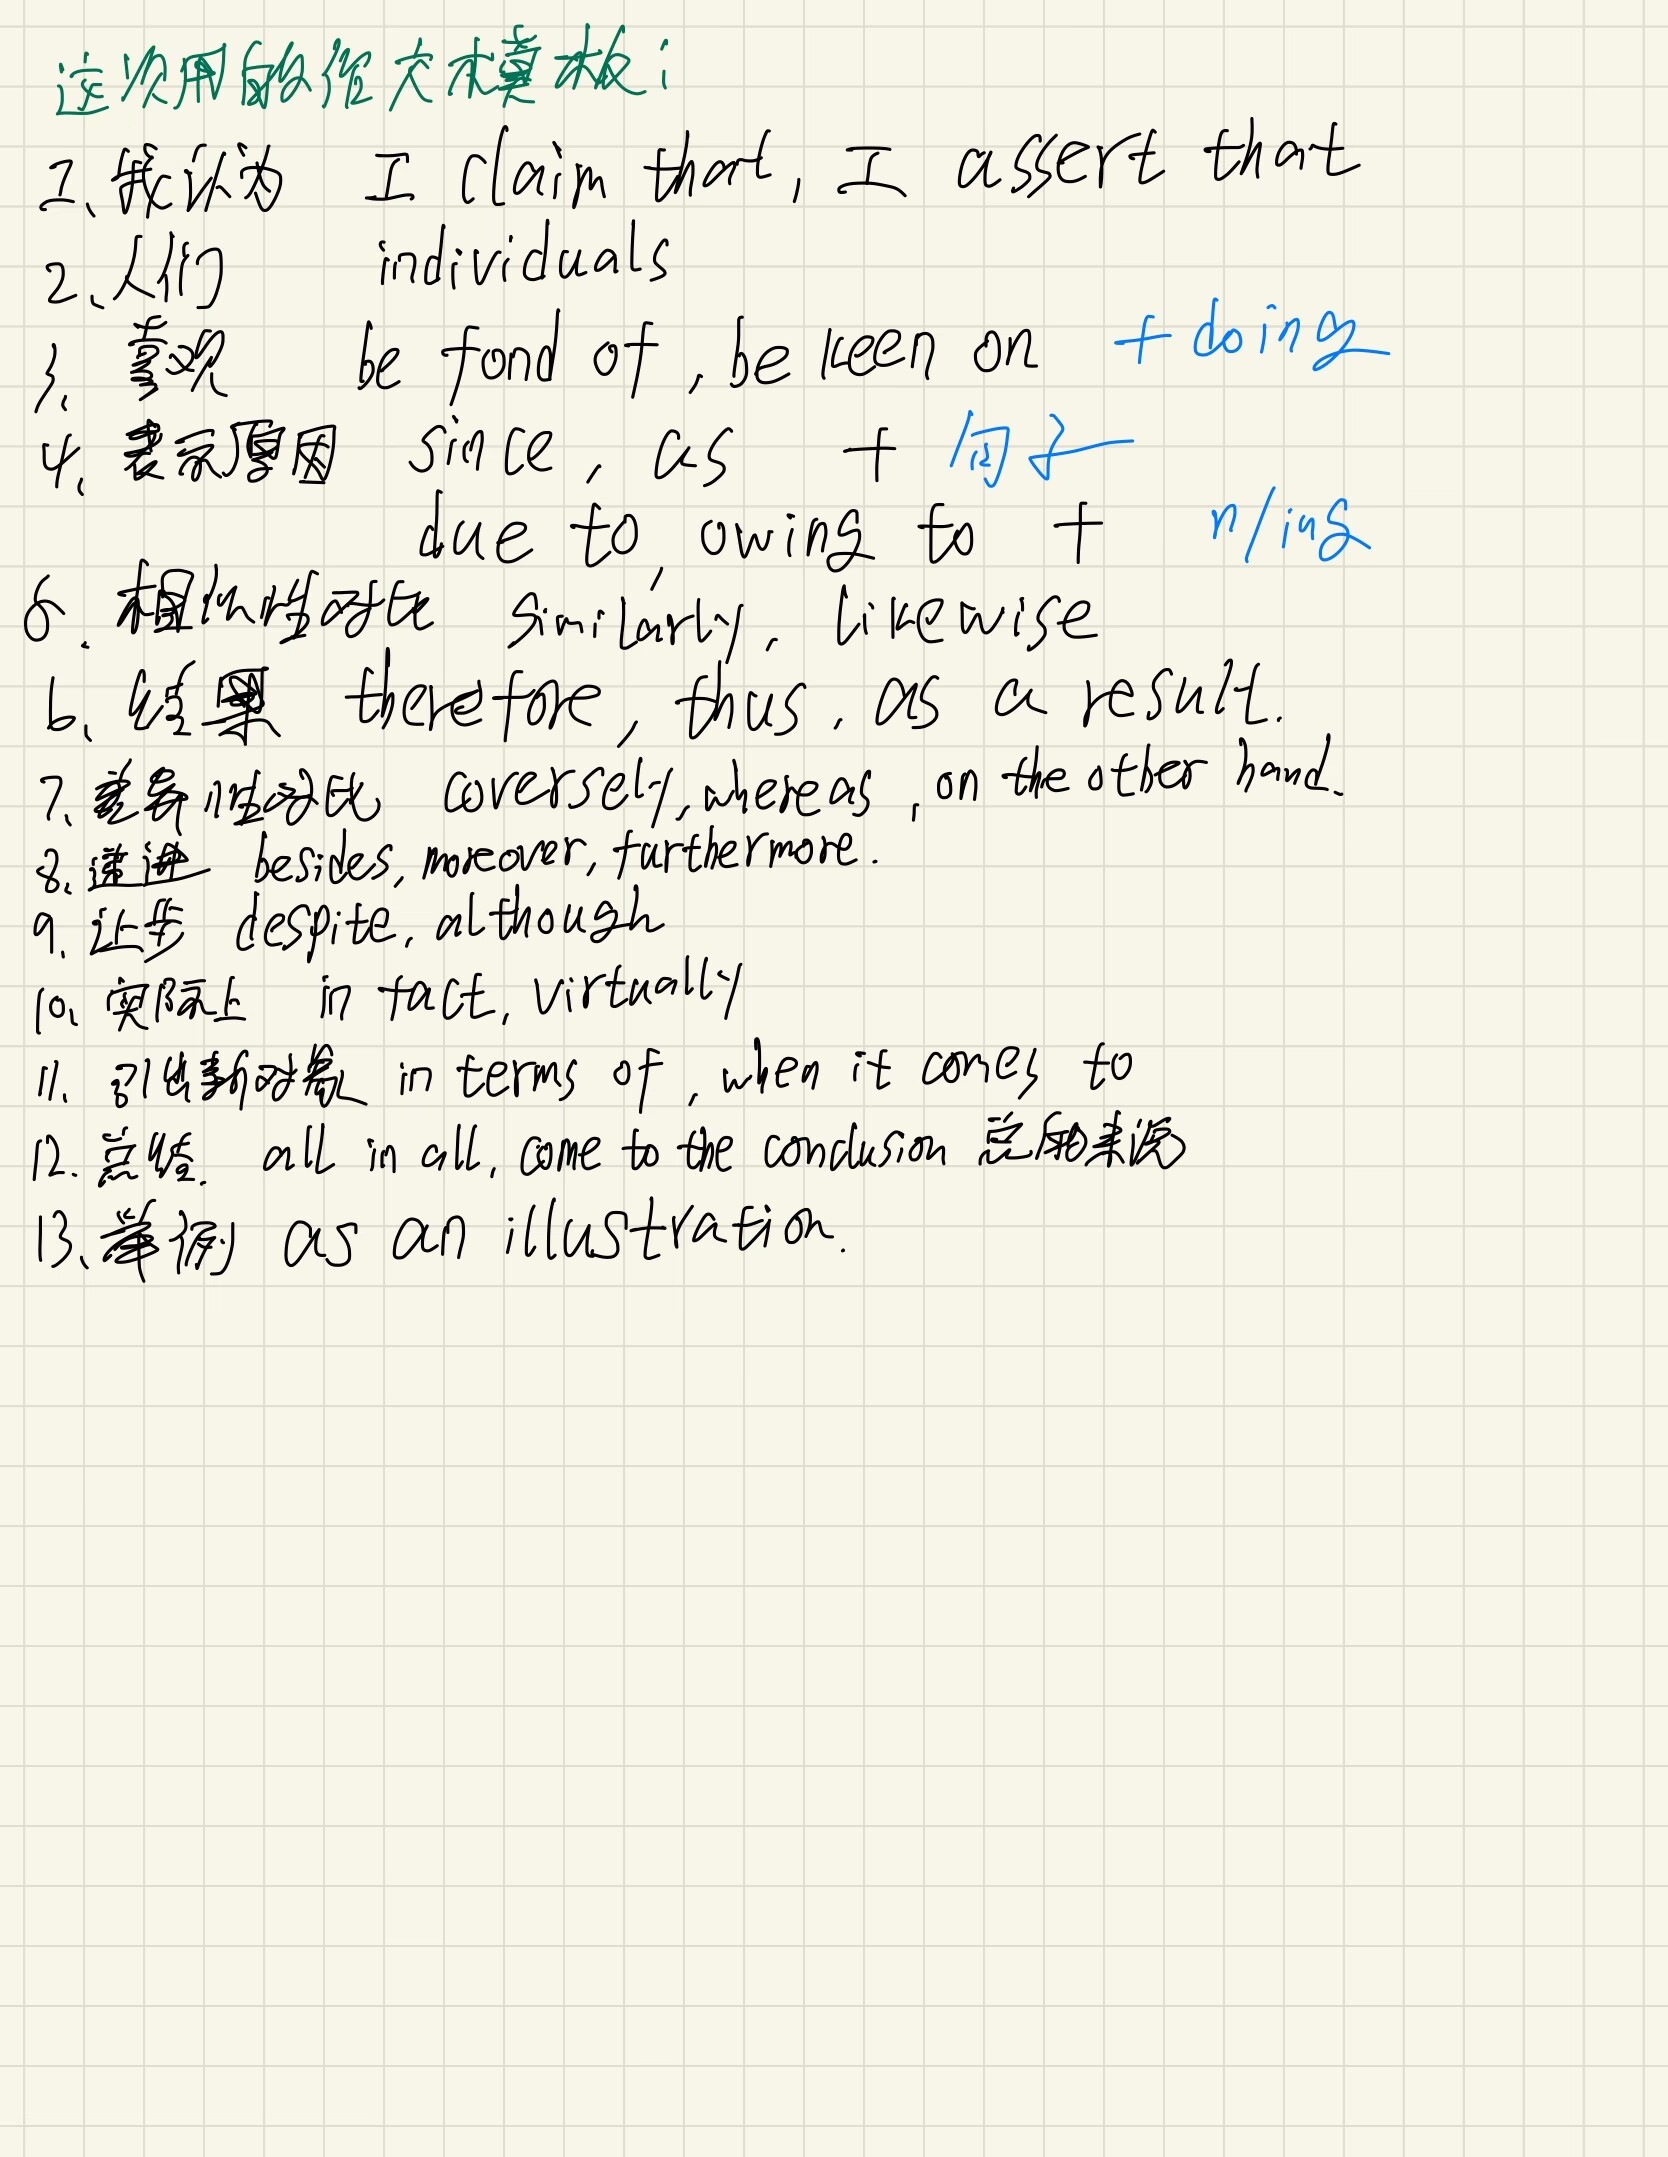 这次用的作文模板：
1、我认为 I claim that, I assert that
2、人们 individuals
3、喜欢 be fond of, be keen on + doing
4、表示原因 since, as + 句子
due to, owing to + n/ing
5、相似性对比 similarly, likewise
6、结果 therefore, thus, as a result.
7、差异性对比 coversely, whereas, on the other hand.
8、递进 besides, moreover, furthermore.
9、让步 despite, although
10、实际上 in fact, virtually
11、引出新对象 in terms of, when it comes to
12、总结. all in all, come to the conclusion 总用来源
13、举例 as an illustration.